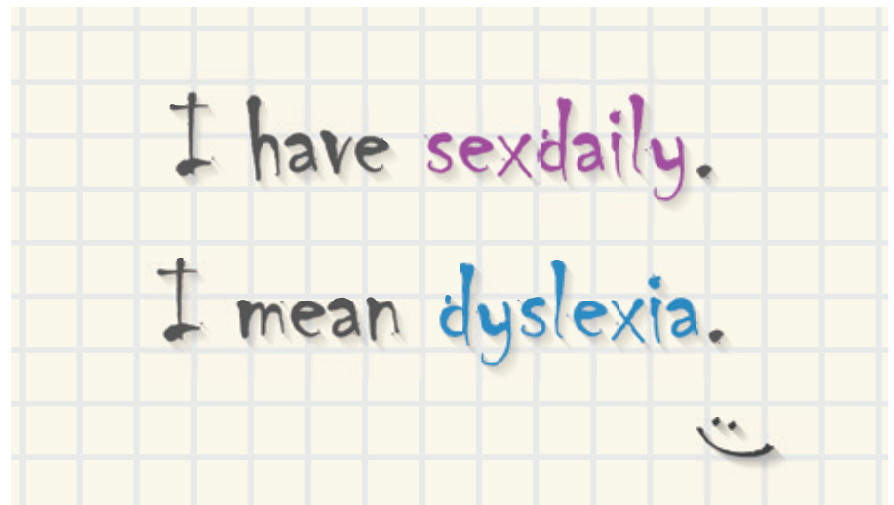 I have sexdaily.
I mean dyslexia.